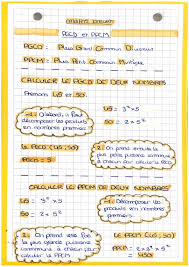 PGCD et PPCM
PGCD : Plus Grand Commun Diviseur
PPCM : Plus Petit Commun Multiple
CALCULER LE PGCD DE DEUX NOMBRES
Prenons 45 et 50.
1. D'abord, il faut
décomposer les produits
en nombres premiers.
45 = 3² × 5
50 = 2 × 5²
Le PGCD (45 ; 50)
PGCD = 5
2. On prend ensuite la
plus petite puissance
commune à chacun
pour calculer le PGCD
CALCULER LE PPCM DE DEUX NOMBRES
45 = 3² × 5
50 = 2 × 5²
1. Décomposer les
produits en nombres
premiers.
2. On prend
la plus grande puissance
à chacun
calculer le PPCM
Le PPCM (45 ; 50)
PPCM = 2 × 3² × 5²